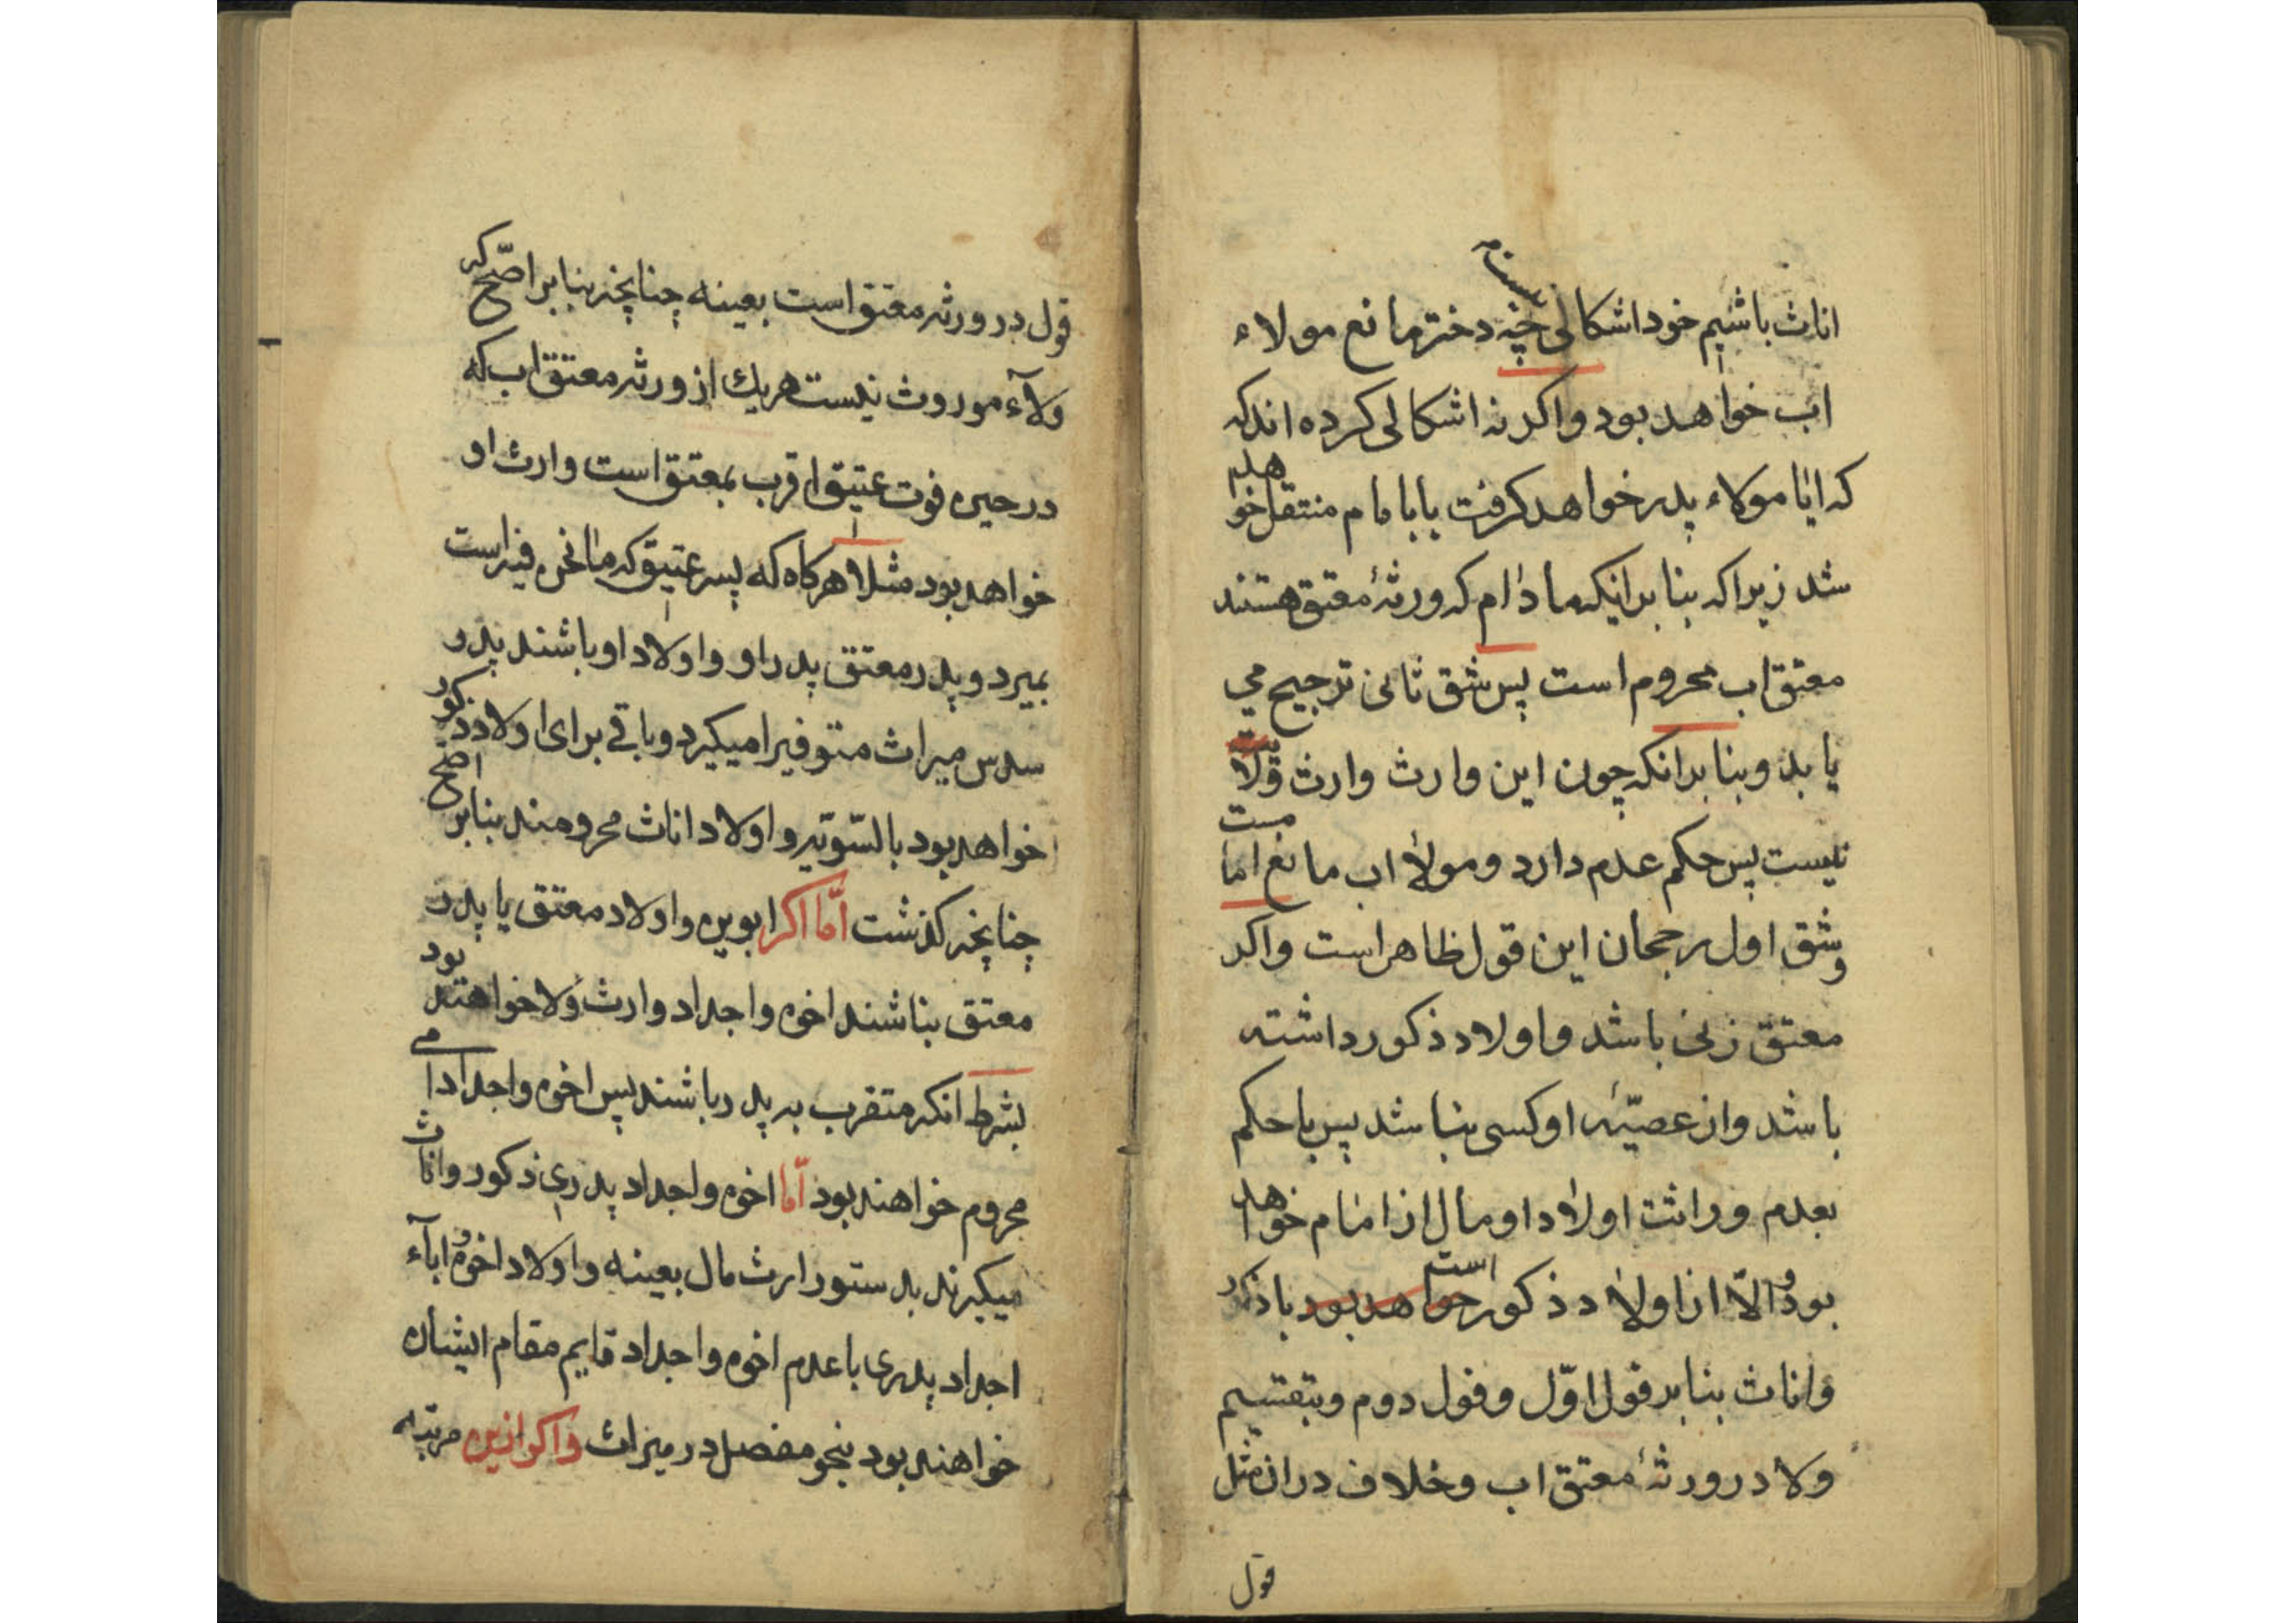 اناث باشیم خود اشکالی نیست چه دختر مانع مولاء
اب خواهد بود واکر نه اشکالی کرده اند که
که ایا مولاء پدر خواهد کرفت یا بامام منتقل خواهد
شد زیرا که بنا بر اینکه مادام که ورثهٔ معتق هستند
معتق اب محروم است پس شق ثانی ترجیح می
یابد وبنا بر انکه چون این وارث وارث ولآ
نیست پس حکم عدم دارد ومولا اب مانع اما
وشق اول رجحان این قول ظاهر است واکر
معتق زنی باشد واولاد ذکور داشته
باشد واز عصبهٔ او کسی نباشد پس با حکم
بعدم وراثت اولاد او مال از امام خواهد
بود والّا از اولاد ذکور خواهد بود است با ذکور
واناث بنا بر قول اوّل وقول دوم وبتقسیم
ولا در ورثهٔ معتق اب وخلاف در ان مثل
قول
قول در ورثه معتق است بعینه چنانچه بنا بر اصّح که
ولآء موروث نیست هریك از ورثه معتق اب که
در حین فوت عتیق اقرب بمعتق است وارث او
خواهد بود مثلا هرکاه که پسر عتیق که مانحن فیه است
بمیرد وپدر معتق پدر او واولاد او باشند پدر
سدس میراث متوفیرا میکیرد وباقی برای اولاد ذکور
خواهد بود بالسّویّه واولاد اناث محرومند بنابر اصّح
چنانچه کذشت امّا اکر ابوین واولاد معتق یا پدر
معتق نباشند اخوه واجداد وارث ولا خواهند بود
بشرط انکه متقرب به پدر باشند پس اخوه واجداد امی
محروم خواهند بود امّا اخوه واجداد پدری ذکور واناث
میکیرند بدستور ارث مال بعینه واولاد اخوه وابآء
اجداد پدری با عدم اخوه واجداد قایم مقام ایشان
خواهند بود بنحو مفصل در میراث واکر ازین مرتبه